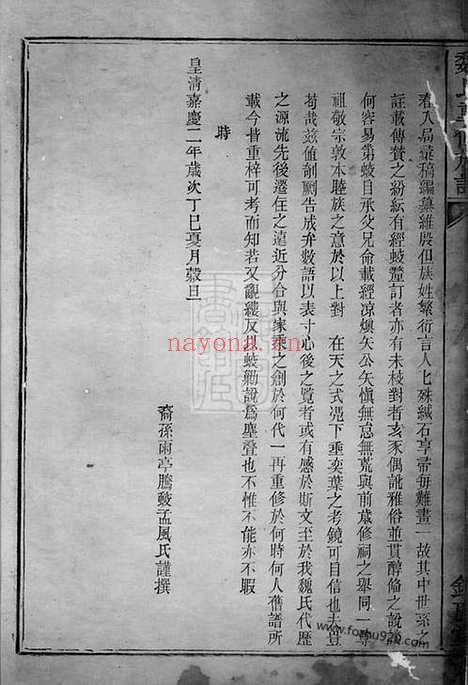 君入局彙稿編纂維殷但族姓繁衍言人亾殊緘石享帚毎難畫一故其中世系之
註載傳贊之紛紜有經蛟釐訂者亦有未校對者亥豕偶訛雅俗並貫醇偹之說談
何容易第蛟自承父兄命載經凉燠矢公矢愼無怠無荒與前歳修祠之舉同一尊
祖敬宗敦本睦族之意於以上對 在天之式凴下垂奕葉之考鏡可自信也夫豈
苟哉兹値剞劂告成弁數語以表寸心後之覽者或有感於斯文至於我魏氏代歷
之源流先後遷住之遠近分合與家乘之創於何代一再重修於何時何人舊譜所
載今皆重梓可考而知若又覼縷反以蛟勦說爲塵聲也不惟不能亦不暇
時
皇清嘉慶二年歳次丁巳夏月穀旦
裔孫雨亭騰蛟孟風氏謹撰
nayona.cn
www.foshu920.com